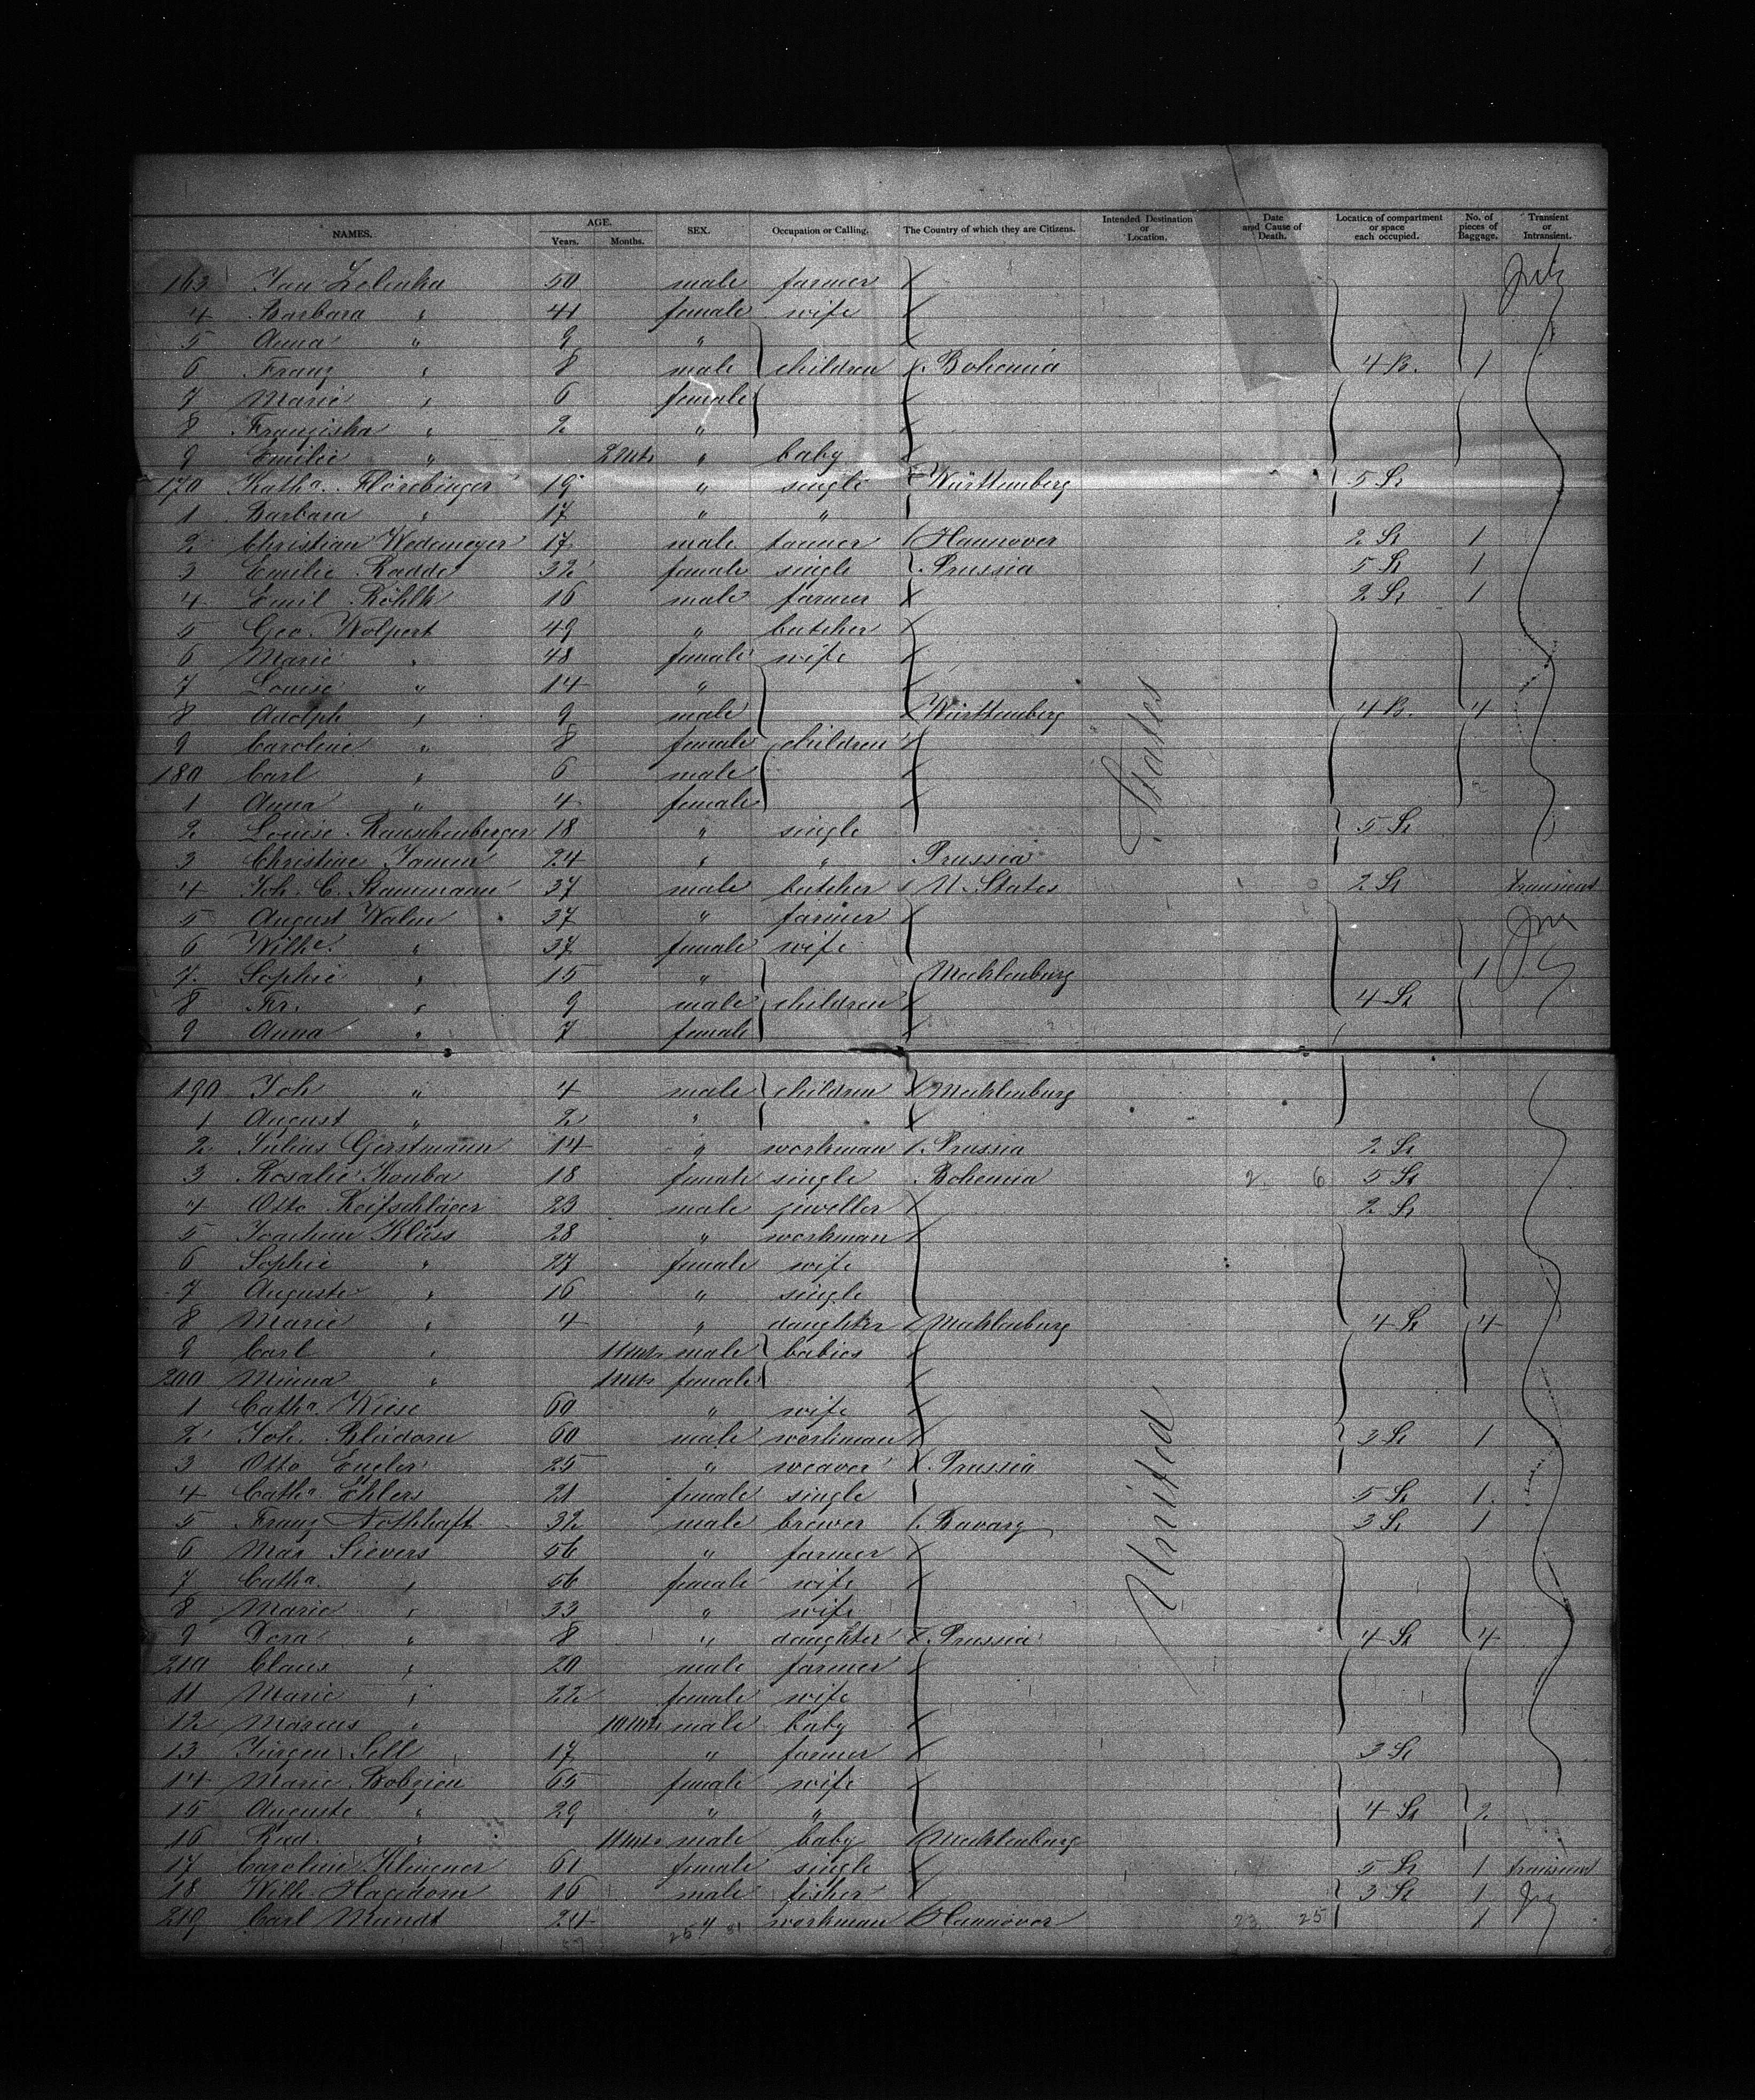 NAMES. AGE. Years. Months. SEX. Occupation or Calling. The Country of which they are Citizens. Intended Destination or Location. Date and Cause of Death. Location of compartment or space each occupied. No. of pieces of Baggage. Transient or Intransient.
163 Jan Zelenka 50 male farmer
4 Barbara " 41 female wife
5 Anna " 9 "
6 Franz " 8 male children Bohemia 4 B. 1
7 Marie " 6 female
8 Franziska " 2 "
9 Emilie " 2 Mts " baby
170 Katha. 19 " single Württemberg 5 St
1 Barbara " 17 " "
2 Christian Wedemeyer 17 male tanner Hannover 2 St 1
3 Emilie Radde 32 female single Prussia 5 St 1
4 Emil Röhlk 16 male farmer 2 St 1
5 Geo. Wolpert 49 " butcher
6 Marie " 48 female wife
7 Louise " 14 "
8 Adolph " 9 male Württemberg 4 B. 4
9 Caroline " 8 female children
180 Carl " 6 male
1 Anna " 4 female
2 Louise Rauschenberger 18 " single 5 St
3 Christine 24 " " Prussia
4 Joh. C. Stammann 37 male butcher U. States 2 St transient
5 August 37 " farmer
6 Wilhe. " 37 female wife
7 Sophie " 15 " Mecklenburg 1
8 Fr. " 9 male children 4 St
9 Anna " 7 female
190 Joh " 4 male children Mecklenburg
1 August " 2 "
2 Julius Gerstmann 14 " workman Prussia 2 St
3 Rosalie Kouba 18 female single Bohemia 2 6 5 St
4 Otto Reifschläger 23 male jeweller 2 St
5 Joachim Klüss 28 " workman
6 Sophie " 27 female wife
7 Auguste " 16 " single
8 Marie " 4 " daughter Mecklenburg 4 St 4
9 Carl " 11 Mts male babies
200 Minna " 1 Mts female
1 Catha. Wiese 60 " wife
2 Joh. Bleidorn 60 male workman 3 St 1
3 Otto Engler 25 " weaver Prussia
4 Catha. Ehlers 21 female single 5 St 1
5 Franz Nothhaft 32 male brewer Bavary 3 St 1
6 Max Sievers 56 " farmer
7 Catha. " 56 female wife
8 Marie " 33 " wife
9 Dora " 8 " daughter Prussia 4 St 4
210 Claus " 20 male farmer
11 Marie " 22 female wife
12 Marcus " 10 Mts male baby
13 Jürgen Sell 17 " farmer 3 St
14 Marie Bobzien 65 female wife
15 Auguste " 29 " " 4 St 2
16 Rud. " 11 Mts male baby Mecklenburg
17 Caroline Klingner 61 female single 5 St 1 transient
18 Wilh. Hagedorn 16 male fisher 3 St 1
219 Carl Mundt 24 " workman Hannover 23 25 1
United States